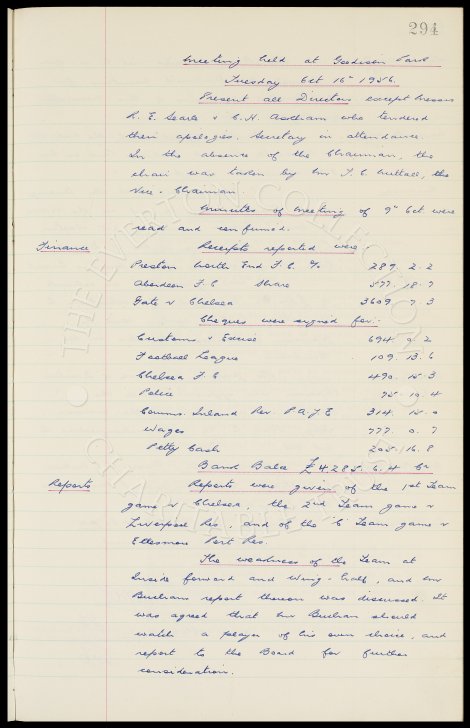 294
Meeting held at Goodison Park
Tuesday Oct 16th 1956.
Present all Directors except Messrs
R. E. Searle & C. H. Askham who tendered
their apologies, Secretary in attendance.
In the absence of the Chairman, the
chair was taken by Mr F. C. Nuttall, the
Vice-Chairman.
Minutes of Meeting of 9th Oct were
read and confirmed.
Finance Receipts reported were:-
Preston North End F.C. 289. 2. 2
Aberdeen F.C. Share 577. 18. 7
Gate v Chelsea 3609. 7. 3
Cheques were signed for:-
Customs & Excise 694. 9. 2
Football League 109. 13. 6
Chelsea F.C. 490. 15. 3
Police 75. 10. 4
Comms. Inland Rev. P.A.Y.E 314. 15. 0
Wages 777. 0. 7
Petty Cash 205. 16. 8
Bank Balce £4285. 6. 4 Cr
Reports Reports were given of the 1st Team
game v Chelsea, the 2nd Team game v
Liverpool Res, and of the "C" Team game v
Ellesmere Port Res.
The weakness of the Team at
Inside forward and Wing-half, and Mr
Buchans report thereon was discussed. It
was agreed that Mr Buchan should
watch a player of his own choice, and
report to the Board for further
consideration.
THE EVERTON COLLECTION